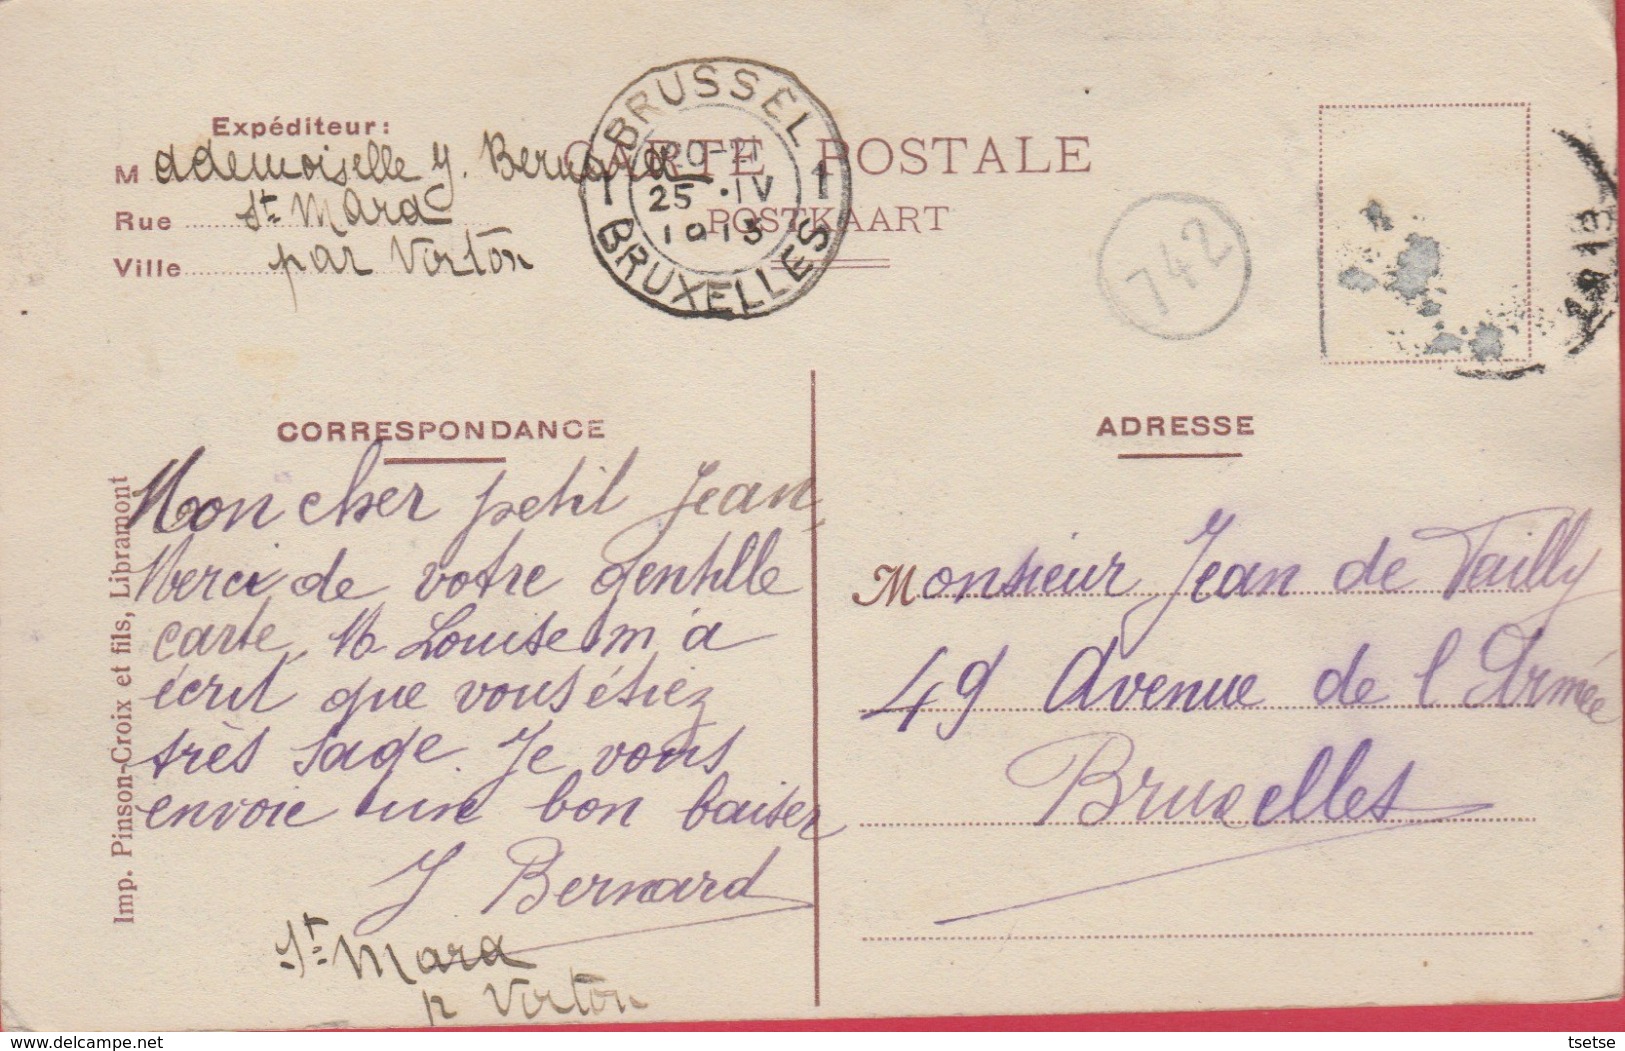 Expéditeur:
Mademoiselle J. Bernard
Rue St Mard
Ville par Virton
BRUSSEL
20-21
1 25 . IV 1
1913
BRUXELLES
CARTE POSTALE
POSTKAART
742
CORRESPONDANCE
Mon cher petit Jean,
Merci de votre gentille
carte, M Louise m'a
écrit que vous étiez
très sage. Je vous
envoie un bon baiser
J Bernard
St Mard
p Virton
Imp. Pinson-Croix et fils, Libramont
ADRESSE
Monsieur Jean de Tailly
49 Avenue de l'Armée
Bruxelles
www.delcampe.net
tsetse